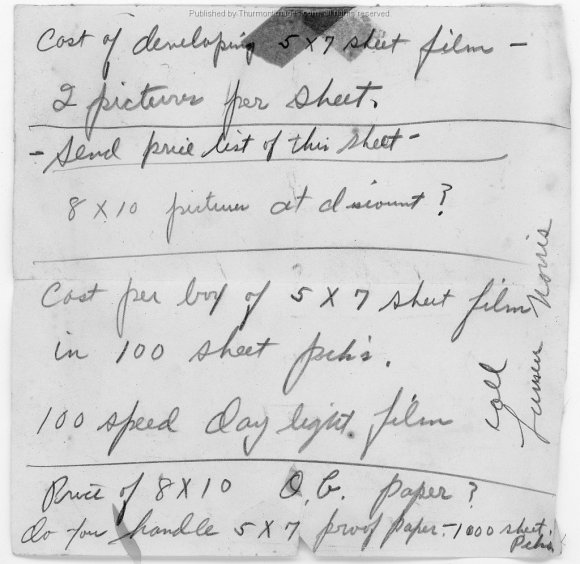 Published by Thurmont Images
rights reserved
Cost of developing 5 X 7 sheet film -
2 pictures per sheet.
- Send price list of this sheet -
8 X 10 pictures at discount?
Cost per box of 5 X 7 sheet film
in 100 sheet pck's.
100 speed Day light film
Price of 8 X 10 paper?
do you handle 5 X 7 proof paper - 1000 sheet
Pck's
Call
Norris